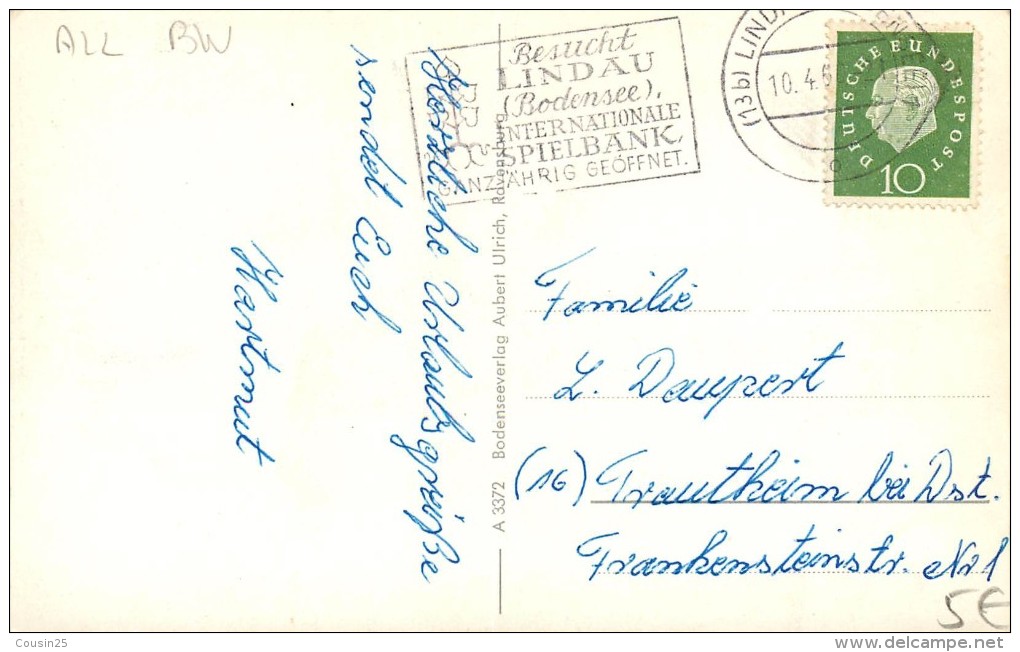 ALL BW
Besucht
LINDAU
(Bodensee),
INTERNATIONALE
SPIELBANK
GANZJÄHRIG GEÖFFNET.
(13b) LINDAU
10. 4. 6
DEUTSCHE BUNDESPOST
10
Herzliche Urlaubsgrüße
sendet Euch
Hartmut
A 3372 Bodenseeverlag Aubert Ulrich, Ravensburg
Familie
L. Daupert
(16) Trautheim bei Dst.
Frankensteinstr. Nr 1
5€
Cousin25
www.delcampe.net